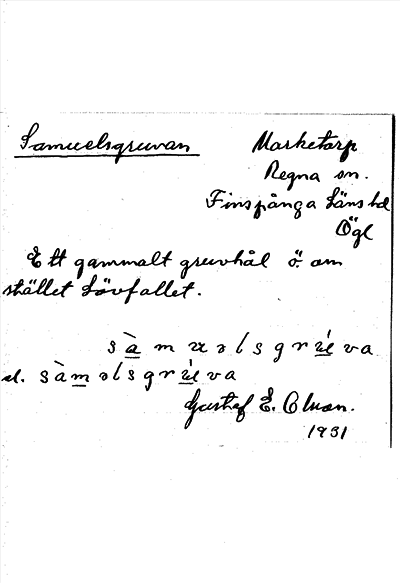 Samuelsgruvan
Marketorp
Regna sn.
Finspånga läns hd
Ögl
Ett gammalt gruvhål ö. om
stället Lövfallet.
sàmuəlsgrúva
el. sàməlsgrúva
Gustaf E.
1931